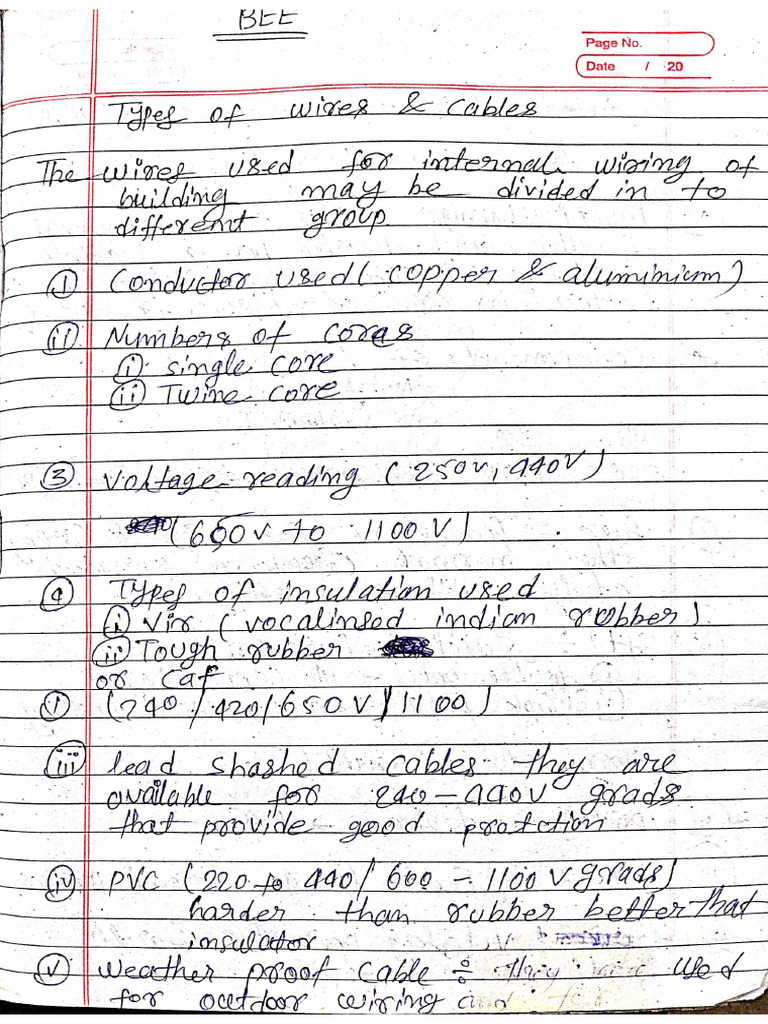 BEE
Page No.
Date / 20
Types of wires & cables
The wires used for internal wiring of
building may be divided in to
different group.
(i) Conductor used ( copper & aluminium)
(ii) Numbers of cores
(i) single core
(ii) Twine core
(3) voltage reading (250v, 440V)
(650v to 1100 V)
(4) Types of insulation used
(i) Vir (vocalinsed indian rubber)
(ii) Tough rubber
or caf
(240/420/650V/1100)
(iii) lead shashed cables they are
available for 240-440v grads
that provide good protction
(iv) PVC (220 to 440/ 600 - 1100 V grads)
harder than rubber better that
insulator
(v) weather proof cable ÷ they used
for outdoor wiring and